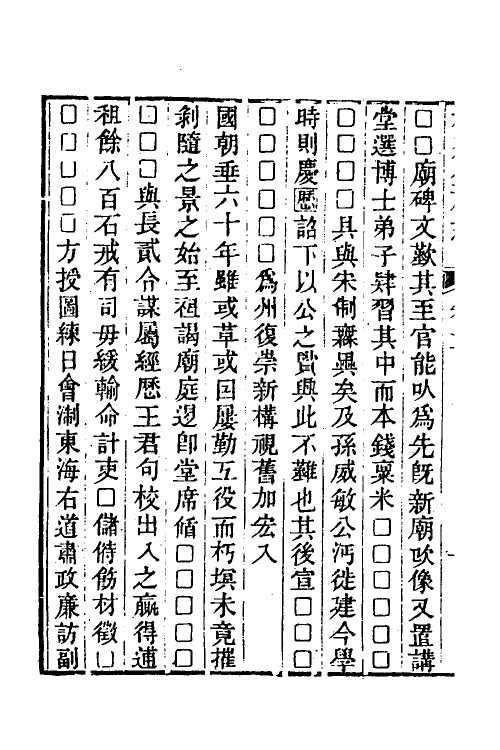 □□廟碑文歎其至官能以爲先旣新廟改像又置講
堂選博士弟子肄習其中而本錢稟米□□□□□□
□□□□具與宋制驟異矣及孫威敏公沔徙建今學
時則慶曆詔下以公之賢興此不難也其後宣□□□
□□□□□□爲州復崇新構視舊加宏入
國朝垂六十年雖或革或因屢勤工役而朽壞未竟摧
剥隨之景之始至祗謁廟庭退卽堂席脩□□□□□
□□□與長貳合謀屬經歷王君句校出入之贏得逋
租餘八百石戒有司毋緩輸命計吏□儲偫飭材徵□
□□□□□方授圖練日會浙東海右道肅政廉訪副